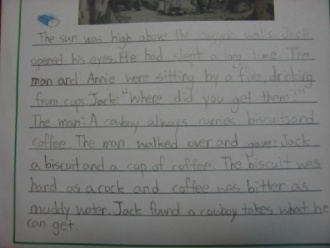 The sun was high above the canyon walls. Jack
opened his eyes. He had slept a long time. The
man and Annie were sitting by a fire, drinking
from cups. Jack: "Where did you get them?"
The man: A cowboy always carries biscuits and
coffee. The man walked over and gave Jack
a biscuit and a cup of coffee. The biscuit was
hard as a rock and coffee was bitter as
muddy water. Jack found a cowboy takes what he
can get.